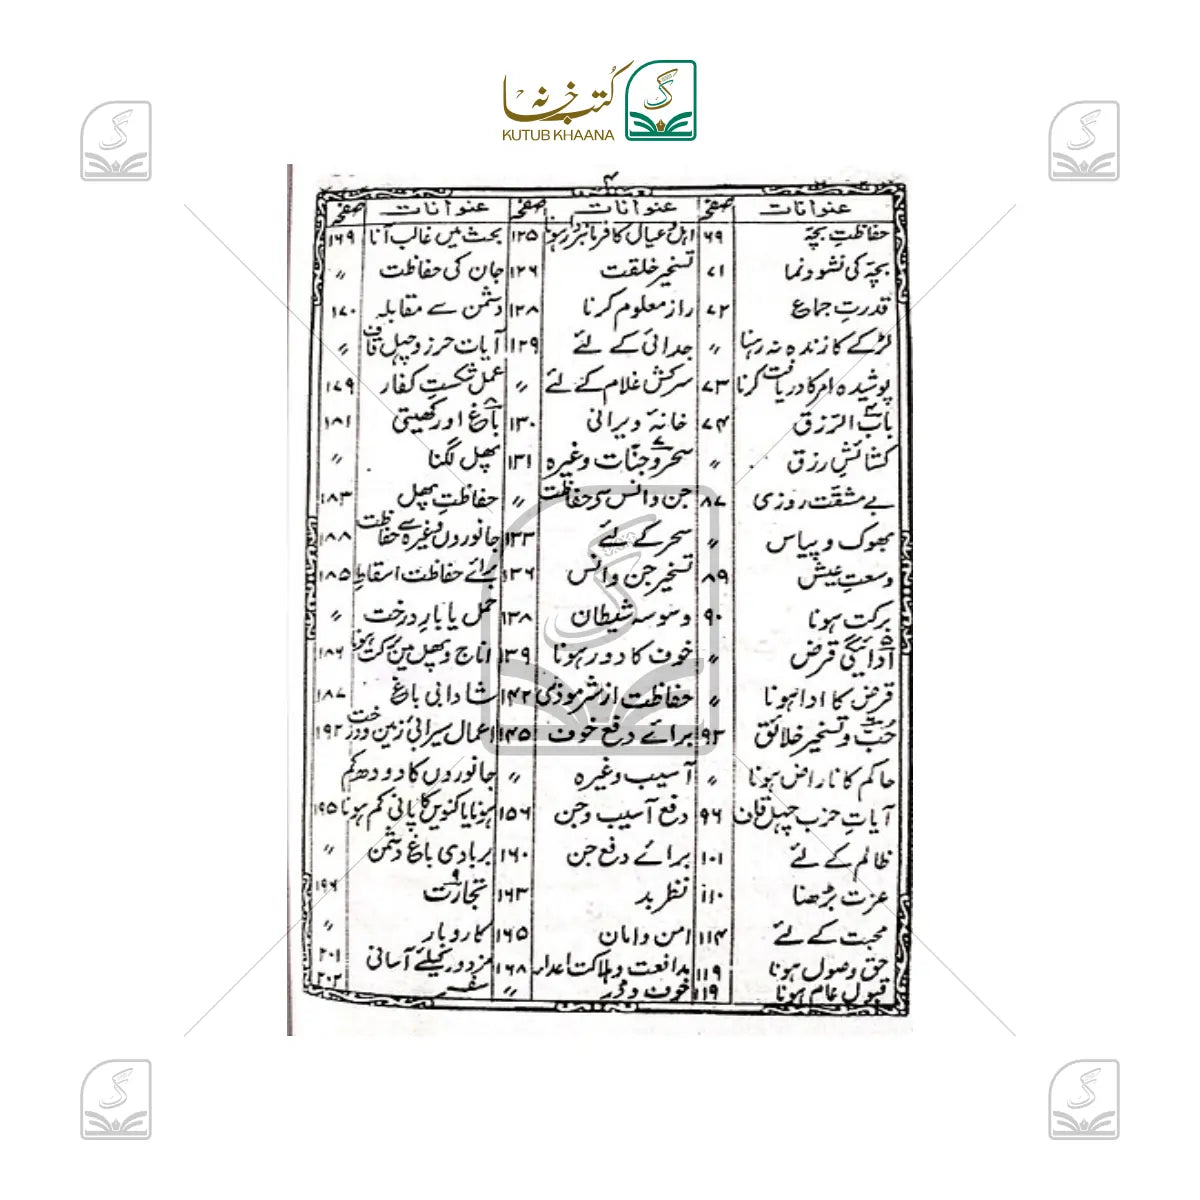 کتب خانہ
KUTUB KHAANA
۴
عنوانات صفحہ عنوانات صفحہ عنوانات صفحہ
حفاظتِ بچہ ۶۹ اہل و عیال کا فرمانبردار ہونا ۱۲۵ بحث میں غالب آنا ۱۶۹
بچہ کی نشوونما ۷۱ تسخیر خلقت ۱۲۶ جان کی حفاظت ״
قدرتِ جماع ۷۲ راز معلوم کرنا ۱۲۸ دشمن سے مقابلہ ۱۷۰
لڑکے کا زندہ نہ رہنا ״ جدائی کے لئے ۱۲۹ آیات حرز و چہل قاف ״
پوشیدہ امر کا دریافت کرنا ۷۳ سرکش غلام کے لئے ״ عمل شکستِ کفار ۱۷۹
باب الرزق ۷۴ خانہ ویرانی ۱۳۰ باغ اور کھیتی ۱۸۱
کشائش رزق ״ سحر و جنات وغیرہ ۱۳۱ پھل لگنا ״
بے مشقت روزی ۸۷ جن و انس سے حفاظت ״ حفاظتِ پھل ۱۸۳
بھوک و پیاس ״ سحر کے لئے ۱۳۳ جانوروں وغیرہ سے حفاظت ۱۸۸
وسعتِ عیش ۸۹ تسخیر جن و انس ۱۳۶ برائے حفاظت اسقاطِ ۱۸۵
برکت ہونا ۹۰ وسوسہ شیطان ۱۳۸ حمل یا بارِ درخت ״
ادائیگی قرض ״ خوف کا دور ہونا ۱۳۹ اناج و پھل میں برکت ہونا ۱۸۶
قرض کا ادا ہونا ״ حفاظت از شر موذی ۱۴۲ شادابی باغ ۱۸۷
حُب و تسخیر خلائق ۹۲ برائے دفع خوف ۱۴۵ اعمال سیرابی زمین و درخت ۱۹۲
حاکم کا ناراض ہونا ״ آسیب وغیرہ ״ جانوروں کا دودھ کم
آیاتِ حزب چہل قاف ۹۶ دفع آسیب و جن ۱۵۶ ہونا یا کنویں کا پانی کم ہونا ۱۹۵
ظالم کے لئے ۱۰۱ برائے دفع جن ۱۶۰ بربادی باغ دشمن ״
عزت بڑھنا ۱۱۰ نظر بد ۱۶۳ تجارت ۱۹۶
محبت کے لئے ۱۱۴ امن و امان ۱۶۵ کاروبار ״
حق وصول ہونا ۱۱۹ مدافعت و ہلاکت اعداء ۱۶۸ مزدور کیلئے آسانی ۲۰۱
قبول عام ہونا ۱۱۹ خوف و ڈر ״ سفر ۲۰۲